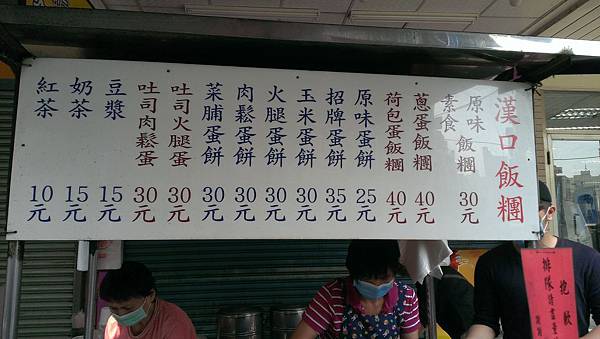 漢口飯糰
原味飯糰
素食
30元
蔥蛋飯糰 40元
荷包蛋飯糰 40元
原味蛋餅 25元
招牌蛋餅 35元
玉米蛋餅 30元
火腿蛋餅 30元
肉鬆蛋餅 30元
菜脯蛋餅 30元
吐司火腿蛋 30元
吐司肉鬆蛋 30元
豆漿 15元
奶茶 15元
紅茶 10元
抱歉
排隊請盡量
謝謝